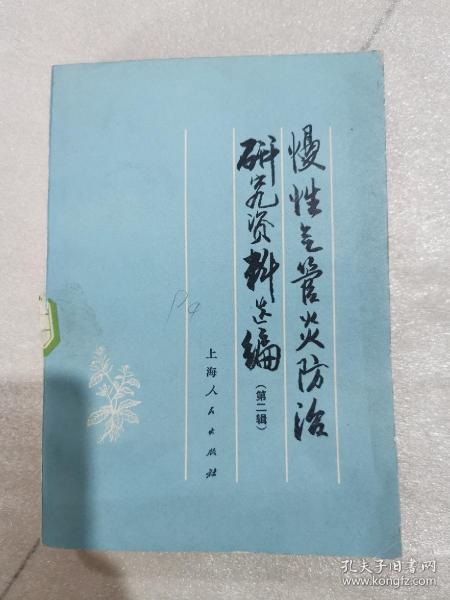 慢性气管炎防治
研究资料选编
(第二辑)
上海人民出版社
P4
孔夫子旧书网
www.kongfz.com